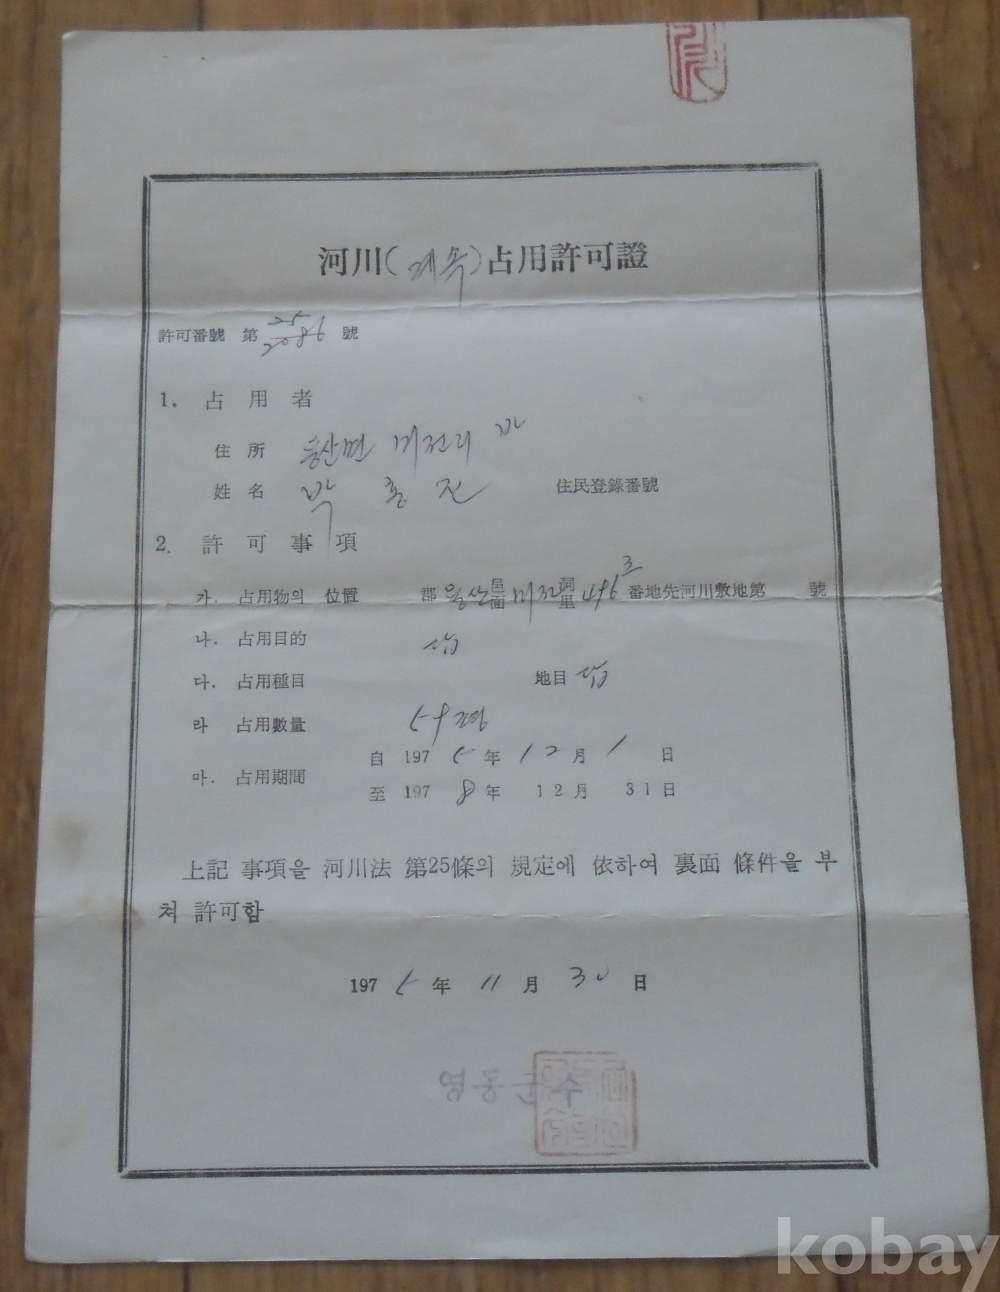 河川(계속)占用許可證
許可番號 第 25 2086 號
1. 占用者
住所 용산면 미전리
姓名 박 홍 진 住民登錄番號
2. 許可事項
가. 占用物의 位置 郡 용산 邑面 미전 洞里 496 3 番地先河川敷地第 號
나. 占用目的 답
다. 占用種目 地目 답
라 占用數量 59평
마. 占用期間
自 1975年 12月 1日
至 1978年 12月 31日
上記 事項을 河川法 第25條의 規定에 依하여 裏面 條件을 부
쳐 許可함
1975年 11月 30日
영동군수
kobay